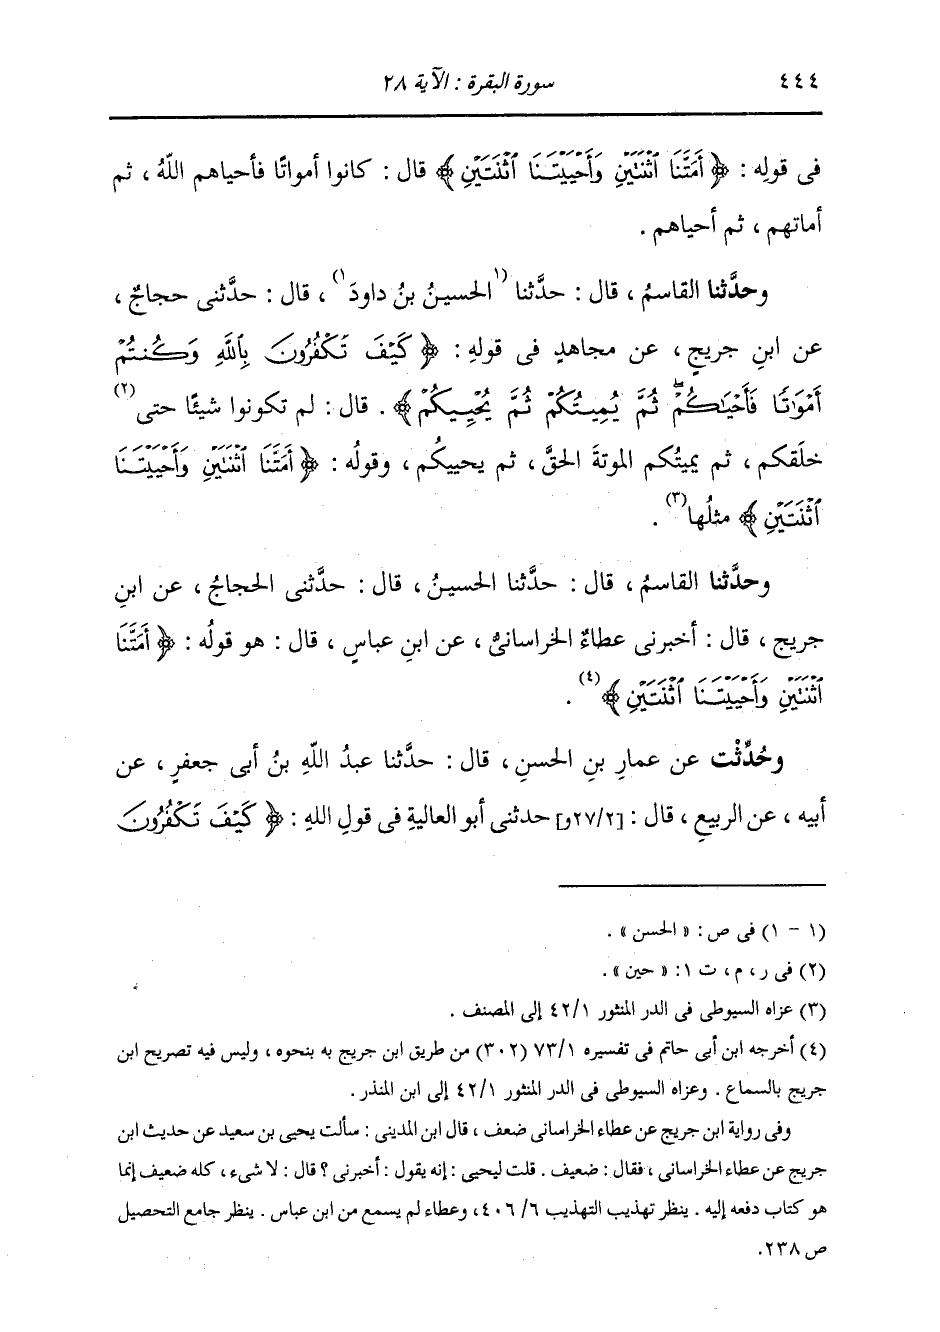 ٤٤٤ سورة البقرة : الآية ٢٨
فى قولِه : ﴿ أَمَتَّنَا ٱثْنَتَيْنِ وَأَحْيَيْتَنَا ٱثْنَتَيْنِ ﴾ قال : كانوا أمواتًا فأحياهم اللهُ ، ثم
أماتهم ، ثم أحياهم .
وحدَّثنا القاسمُ ، قال : حدَّثنا (١الحسينُ بنُ داودَ١) ، قال : حدَّثنى حجاجٌ ،
عن ابنِ جريجٍ ، عن مجاهدٍ فى قولِه : ﴿ كَيْفَ تَكْفُرُونَ بِٱللَّهِ وَكُنتُمْ
أَمْوَٰتًا فَأَحْيَـٰكُمْۖ ثُمَّ يُمِيتُكُمْ ثُمَّ يُحْيِيكُمْ ﴾ . قال : لم تكونوا شيئًا حتى(٢)
خلَقكم ، ثم يميتُكم الموتةَ الحقَّ ، ثم يحييكُم ، وقولُه : ﴿ أَمَتَّنَا ٱثْنَتَيْنِ وَأَحْيَيْتَنَا
ٱثْنَتَيْنِ ﴾ مثلُها(٣) .
وحدَّثنا القاسمُ ، قال : حدَّثنا الحسينُ ، قال : حدَّثنى الحجاجُ ، عن ابنِ
جريجٍ ، قال : أخبرنى عطاءٌ الخراسانىُّ ، عن ابنِ عباسٍ ، قال : هو قولُه : ﴿ أَمَتَّنَا
ٱثْنَتَيْنِ وَأَحْيَيْتَنَا ٱثْنَتَيْنِ ﴾(٤) .
وحُدِّثْت عن عمارِ بنِ الحسنِ ، قال : حدَّثنا عبدُ اللهِ بنُ أبى جعفرٍ ، عن
أبيه ، عن الربيعِ ، قال : [٢٧/٢و] حدثنى أبو العاليةِ فى قولِ اللهِ : ﴿ كَيْفَ تَكْفُرُونَ
(١ - ١) فى ص : « الحسن » .
(٢) فى ر ، م ، ت ١ : « حين » .
(٣) عزاه السيوطى فى الدر المنثور ٤٢/١ إلى المصنف .
(٤) أخرجه ابن أبى حاتم فى تفسيره ٧٣/١ (٣٠٢) من طريق ابن جريج به بنحوه ، وليس فيه تصريح ابن
جريج بالسماع . وعزاه السيوطى فى الدر المنثور ٤٢/١ إلى ابن المنذر .
وفى رواية ابن جريج عن عطاء الخراسانى ضعف ، قال ابن المدينى : سألت يحيى بن سعيد عن حديث ابن
جريج عن عطاء الخراسانى ، فقال : ضعيف . قلت ليحيى : إنه يقول : أخبرنى ؟ قال : لا شىء ، كله ضعيف إنما
هو كتاب دفعه إليه . ينظر تهذيب التهذيب ٤٠٦/٦ ، وعطاء لم يسمع من ابن عباس . ينظر جامع التحصيل
ص ٢٣٨.